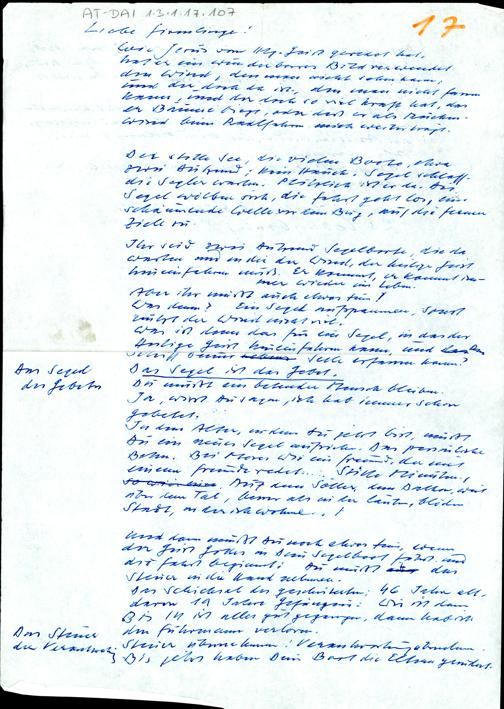 AT-DAI 1.3.1.17.107
17
Liebe Firmlinge!
Wie Jesus vom Hlg. Geist geredet hat,
hat er ein wunderbares Bild verwendet
den Wind, den man nicht sehen kann,
und der doch da ist, den man nicht
kann, und der doch so viel Kraft hat, das
er Bäume biegt, oder dass er als Rücken-
wind beim Radlfahren mich weiterträgt.
Der stille See, die vielen Boote, etwa
zwei Hundert, kein Hauch, Segel schlaff.
die Segler warten. Plötzlich ist er da. Die
Segel wölben sich, die Fahrt geht los, eine
schäumende Welle vor dem Bug, auf die fernen
Ziele zu.
Ihr seid zwei Hundert Segelboote, die da
warten und in die der Wind, der heilige Geist
hineinfahren muß. Er kommt, er kommt im-
mer wieder im Leben.
Aber ihr müßt auch etwas tun!
Was denn? Ein Segel aufspannen, sonst
nützt der Wind nicht viel.
Was ist denn das für ein Segel, in das der
Heilige Geist hineinfahren kann, und
Schiff Deiner Seele erfassen kann?
Das Segel
des Gebetes
Das Segel ist das Gebet.
Du mußt ein betender Mensch bleiben.
Ja, wirst Du sagen, ich hab immer schon
gebetet.
In dem Alter, in dem Du jetzt bist, mußt
Du ein neues Segel aufziehen. Das persönliche
Beten. Bei Moses wie ein Freund, der mit
einem Freunde redet... Stille Minuten,
Auf dem Söller, dem Balkon, weit
über dem Tal, besser als in der lauten, blöden
Stadt, in der ich wohne..!
Und dann mußt Du noch etwas tun, wenn
der Geist Gottes in Dein Segelboot fährt, und
die Fahrt beginnt: Du mußt das
Steuer in die Hand nehmen.
Das Schicksal des gescheiterten: 46 Jahre alt,
davon 19 Jahre Gefängnis: Wie ist denn
Bis 14 ist alles gut gegangen, dann hab ich
den Führmann verlorn.
Das Steuer
der Verantwortung
Steuer übernehmen: Verantwortung übernehmen.
Bis jetzt haben Dein Boot die Eltern gesteuert.